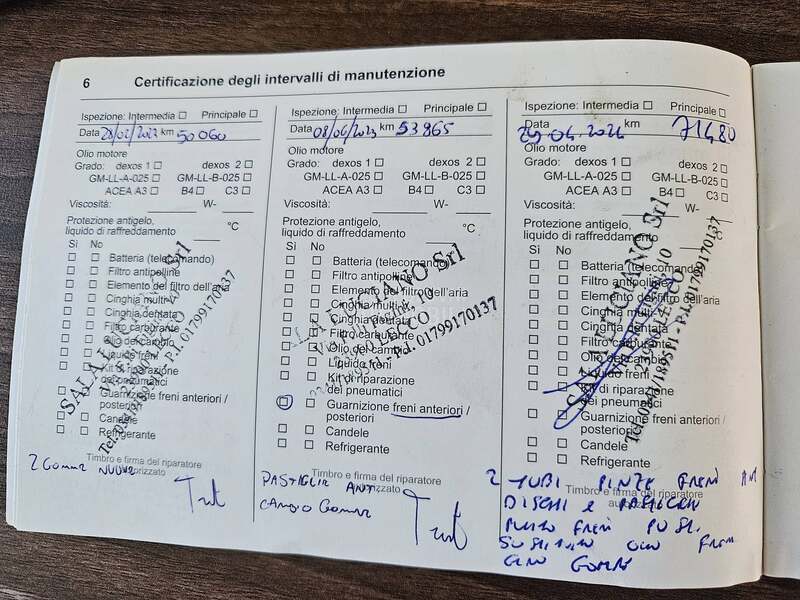 6 Certificazione degli intervalli di manutenzione
Ispezione: Intermedia Principale
Data 28/02/2023 km 50060
Olio motore
Grado: dexos 1 dexos 2
GM-LL-A-025 GM-LL-B-025
ACEA A3 B4 C3
Viscosità: W-
Protezione antigelo,
liquido di raffreddamento °C
Sì No
Batteria (telecomando)
Filtro antipolline
Elemento del filtro dell'aria
Cinghia multi-V
Cinghia dentata
Filtro carburante
Olio del cambio
Liquido freni
Kit di riparazione
dei pneumatici
Guarnizione freni anteriori /
posteriori
Candele
Refrigerante
Timbro e firma del riparatore
autorizzato
2 Gomme NUOVE
Ispezione: Intermedia Principale
Data 08/06/2023 km 53865
Olio motore
Grado: dexos 1 dexos 2
GM-LL-A-025 GM-LL-B-025
ACEA A3 B4 C3
Viscosità: W-
Protezione antigelo,
liquido di raffreddamento °C
Sì No
Batteria (telecomando)
Filtro antipolline
Elemento del filtro dell'aria
Cinghia multi-V
Cinghia dentata
Filtro carburante
Olio del cambio
Liquido freni
Kit di riparazione
dei pneumatici
Guarnizione freni anteriori /
posteriori
Candele
Refrigerante
LECCO
P.I. 01799170137
Timbro e firma del riparatore
autorizzato
PASTIGLIE ANT
CAMBIO GOMME
Ispezione: Intermedia Principale
Data 29.04.2024 km 71480
Olio motore
Grado: dexos 1 dexos 2
GM-LL-A-025 GM-LL-B-025
ACEA A3 B4 C3
Viscosità: W-
Protezione antigelo,
liquido di raffreddamento °C
Sì No
Batteria (telecomando)
Filtro antipolline
Elemento del filtro dell'aria
Cinghia multi-V
Cinghia dentata
Filtro carburante
Olio del cambio
Liquido freni
Kit di riparazione
dei pneumatici
Guarnizione freni anteriori /
posteriori
Candele
Refrigerante
P.I. 01799170137
Timbro e firma del riparatore
autorizzato
2 TUBI PINZE FRENI ANT
DISCHI e PASTIGLIE
FRENI POST.
OLIO FRENI
GOMME